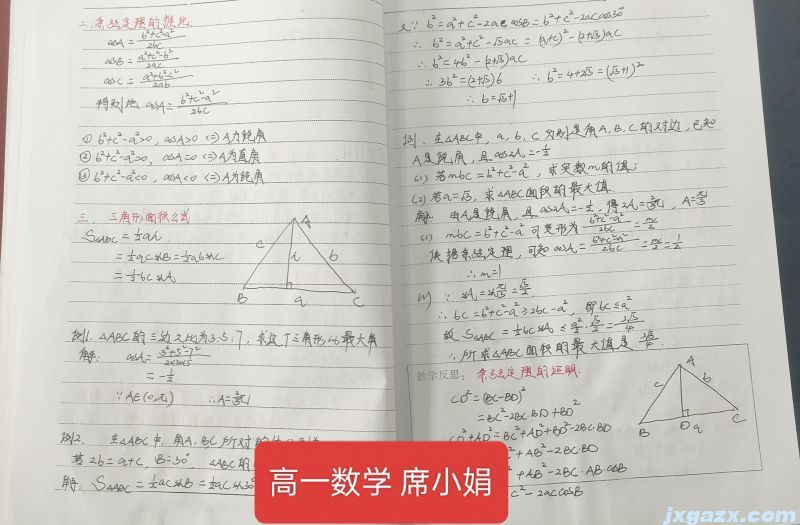 二、余弦定理的推论
cosA = (b²+c²-a²)/2bc
cosB = (a²+c²-b²)/2ac
cosC = (a²+b²-c²)/2ab
特别地 cosA = (b²+c²-a²)/2bc
① b²+c²-a²>0, cosA>0 <=> A为锐角
② b²+c²-a²=0, cosA=0 <=> A为直角
③ b²+c²-a²<0, cosA<0 <=> A为钝角
三、三角形面积公式
S△ABC = ½ah
= ½acsinB = ½absinC
= ½bcsinA
A
c
h
b
B
a
C
例1. △ABC的三边之比为3:5:7, 求这个三角形的最大角
解: cosA = (3²+5²-7²)/2×3×5
= -½
∵ A∈(0,π) ∴ A=⅔π
例2. 在△ABC中, 角A,B,C所对的
若 2b=a+c, B=30°, △ABC的
解: S△ABC = ½acsinB = ½acsin30°
又∵ b²=a²+c²-2accosB=b²+c²-2accos30°
∴ b²=a²+c²-√3ac=(a+c)²-(2+√3)ac
∴ b²=4b²-(2+√3)ac
∴ 3b²=(2+√3)6 ∴ b²=4+2√3=(√3+1)²
∴ b=√3+1
例. 在△ABC中, a, b, c分别是角A,B,C的对边, 已知
A是锐角, 且cos2A=-½
(1) 若mbc=b²+c²-a², 求实数m的值;
(2) 若a=√3, 求△ABC面积的最大值
解: 由A是锐角, 且cos2A=-½, 得2A=⅔π, A=π/3
(1) mbc=b²+c²-a² 可变形为 (b²+c²-a²)/2bc = m/2
依据余弦定理, 可知cosA=(b²+c²-a²)/2bc=m/2=½
∴ m=1
∵ sinA=sinπ/3=√3/2,
∴ bc=b²+c²-a²≥2bc-a², 即bc≤a²
故S△ABC=½bcsinA≤a²/2·√3/2=3√3/4
∴ 所求△ABC面积的最大值是 3√3/4
教学反思: 余弦定理的证明:
CD²=(BC-BD)²
=BC²-2BC·BD+BD²
CD²+AD²=BC²+AD²+BD²-2BC·BD
+AB²-2BC·BD
+AB²-2BC·AB·cosB
c²-2accosB
A
c
b
B
D
a
C
高一数学 席小娟
jxgazx.com